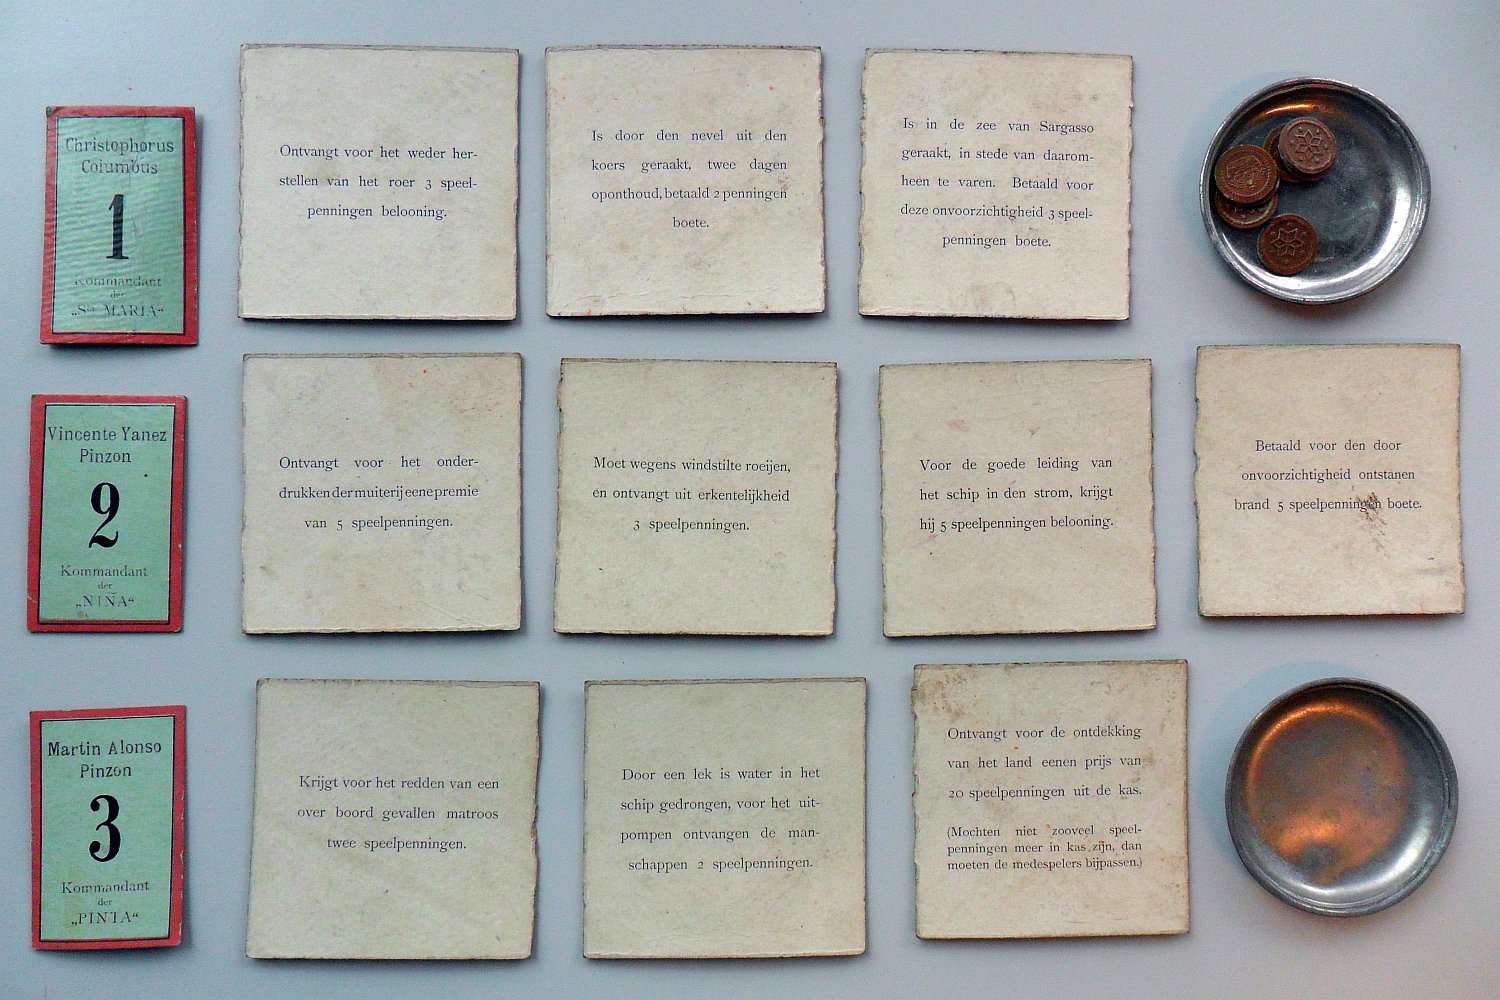 Christophorus
Columbus
1
Kommandant
der
„Sta MARIA“
Ontvangt voor het weder her-
stellen van het roer 3 speel-
penningen belooning.
Is door den nevel uit den
koers geraakt, twee dagen
oponthoud, betaald 2 penningen
boete.
Is in de zee van Sargasso
geraakt, in stede van daarom-
heen te varen. Betaald voor
deze onvoorzichtigheid 3 speel-
penningen boete.
Vincente Yanez
Pinzon
2
Kommandant
der
„NIÑA“
Ontvangt voor het onder-
drukken der muiterij eene premie
van 5 speelpenningen.
Moet wegens windstilte roeijen,
en ontvangt uit erkentelijkheid
3 speelpenningen.
Voor de goede leiding van
het schip in den strom, krijgt
hij 5 speelpenningen belooning.
Betaald voor den door
onvoorzichtigheid ontstanen
brand 5 speelpenningen boete.
Martin Alonso
Pinzon
3
Kommandant
der
„PINTA“
Krijgt voor het redden van een
over boord gevallen matroos
twee speelpenningen.
Door een lek is water in het
schip gedrongen, voor het uit-
pompen ontvangen de man-
schappen 2 speelpenningen.
Ontvangt voor de ontdekking
van het land eenen prijs van
20 speelpenningen uit de kas.
(Mochten niet zooveel speel-
penningen meer in kas zijn, dan
moeten de medespelers bijpassen.)